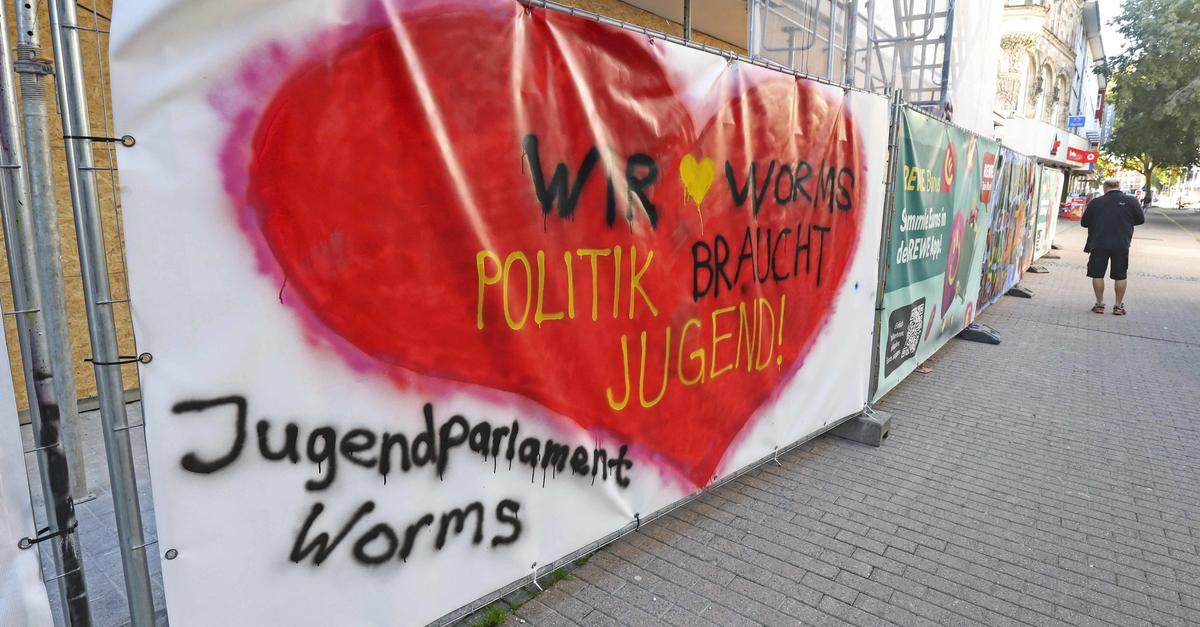 WIR 💛 WORMS
POLITIK BRAUCHT
JUGEND!
Jugendparlament
Worms
REWE Bonus
Sammle Euros in
der REWE App!
REWE